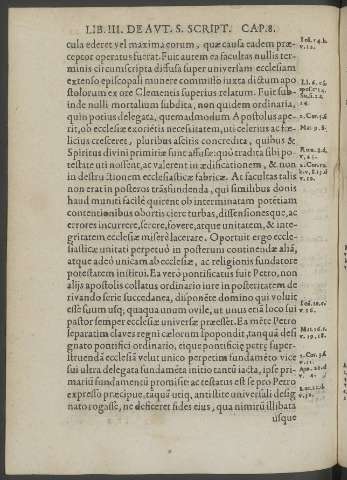 LIB. III. DE AVT. S. SCRIPT. CAP. 8.
cula ederet vel maxima eorum, quæ causa eadem præ-
ceptor operatus fuerat. Fuit autem ea facultas nullis ter-
minis circumscripta diffusa super universam ecclesiam
extensio episcopali munere commisso juxta dictum apo
stolorum ex ore Clementis superius relatum. Fuit sub-
inde nulli mortalium subdita, non quidem ordinaria,
quin potius delegata, quemadmodum Apostolus ape-
rit, ob ecclesiæ exoriētis necessitatem, uti celerius ac fœ-
licius cresceret, pluribus ascitis concredita, quibus &
Spiritus divini primitiæ sunt assusæ quò tradita sibi po-
testate uti nossent, ac valerent in ædificationem, & non
in destructionem ecclesiasticæ fabricæ. At facultas talis
non erat in posteros trāsfundenda, qui similibus donis
haud muniti facilè quirent ob interminatam potētiam
contentionibus obortis ciere turbas, dissensionesque, ac
errores incurrere, serere, fovere, atque unitatem, & inte-
gritatem ecclesiæ miserè lacerare. Oportuit ergo eccle-
siasticæ unitati perpetuò in posterum continendæ abā,
atque adeò unicam ab ecclesiæ, ac religionis fundatore
potestatem institui. Ea verò pontificatus fuit Petro, non
alijs apostolis collatus ordinario iure in posteritatem de
rivando serie succedanea, disponēte domino qui voluit
esse suum usq; quaqua unum ovile, ut unus etiā loco sui
pastor semper ecclesiæ universæ præesset. Ea mēte Petro
separatim claves regni cælorum spopondit, tanquā desi
gnato pontifici ordinario, eique pontificię petrę super-
struendā ecclesiā velut unico perpetim fundamēto vice
sui ultra delegata fundamēta initio tantū iacta, ipse pri-
mariū fundamentū promisit: ac testatus est se pro Petro
expressò præcipue, tāquā uti q; antistite universali desig
nato rogasse, ne deficeret fides eius, qua nimirū illibata
usque
Ioā. 14. b.
v. 12.
2. Cor. 3. 6
Mat. 9. 8.
Rom. 8. d.
v. 23.
2. Cor. 10.
Ioā. 10. c.
v. 16.
Mat. 16. c.
v. 19. 18.
1. Cor. 3. 6
v. 11.
Luc. 22. d.
v. 32.